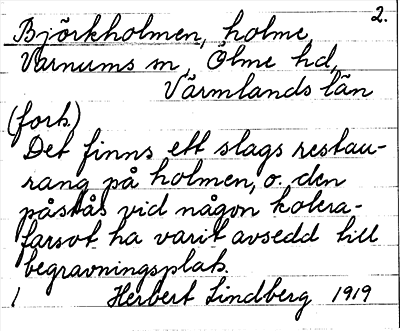 2.
Björkholmen, holme,
Varnums sn, Ölme hd,
Värmlands län
(forts.)
Det finns ett slags restau-
rang på holmen, o. den
påstås vid någon kolera-
farsot ha varit avsedd till
begravningsplats.
1 Herbert Lindberg 1919